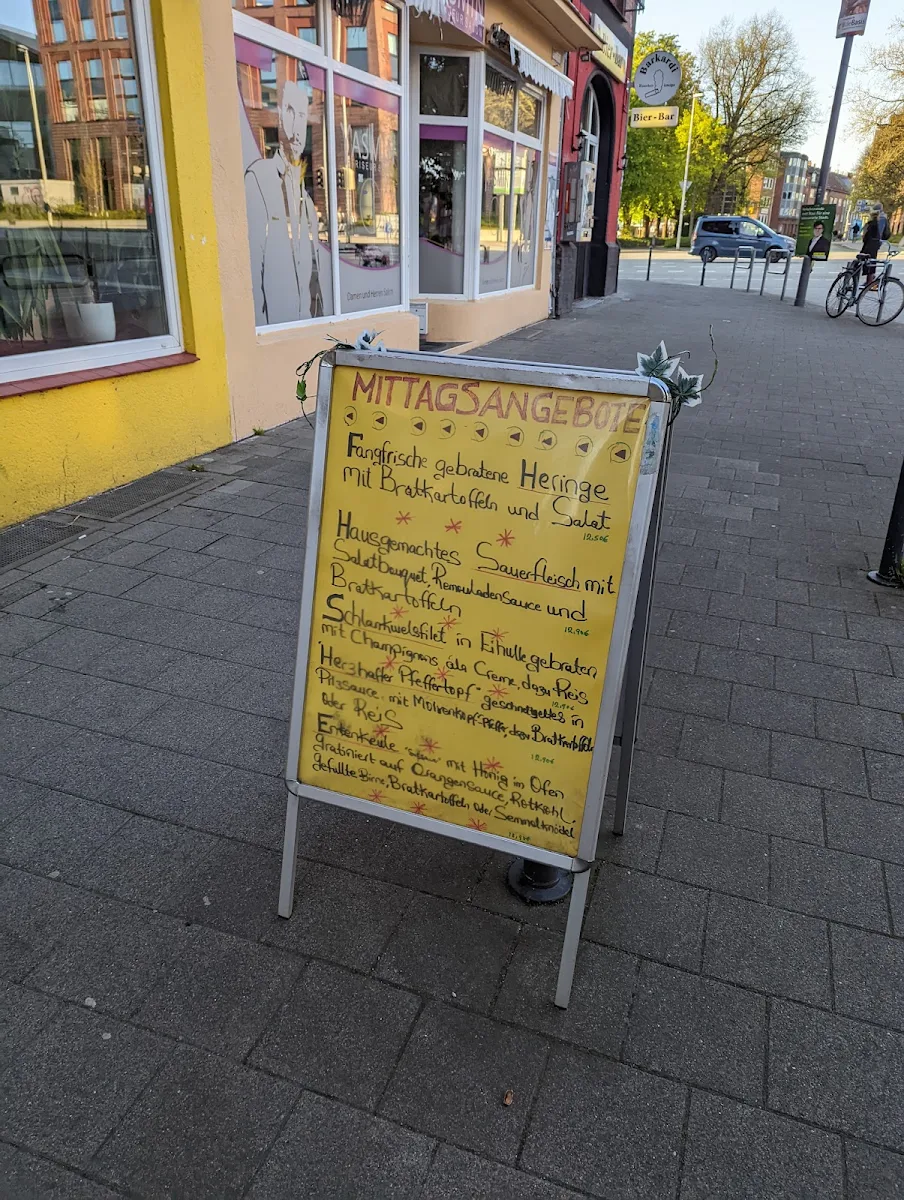 Barkardt
Bier-Bar
Damen und Herren Salon
MITTAGSANGEBOTE
Fangfrische gebratene Heringe
mit Bratkartoffeln und Salat
12.50€
Hausgemachtes Sauerfleisch mit
Salatbouquet, Remouladensauce und
Bratkartoffeln
12,90€
Schlankwelsfilet in Eihülle gebraten
mit Champignons ála Creme, dazu Reis
12.90€
"Herzhafter Pfeffertopf" geschnetzeltes in
Pilzsauce, mit Mohrenkopf-Pfeffer, dazu Bratkartoffeln
oder Reis
12.90€
Entenkeule mit Honig im Ofen
gratiniert auf Orangensauce, Rotkohl,
gefüllte Birne, Bratkartoffeln oder Semmelknödel